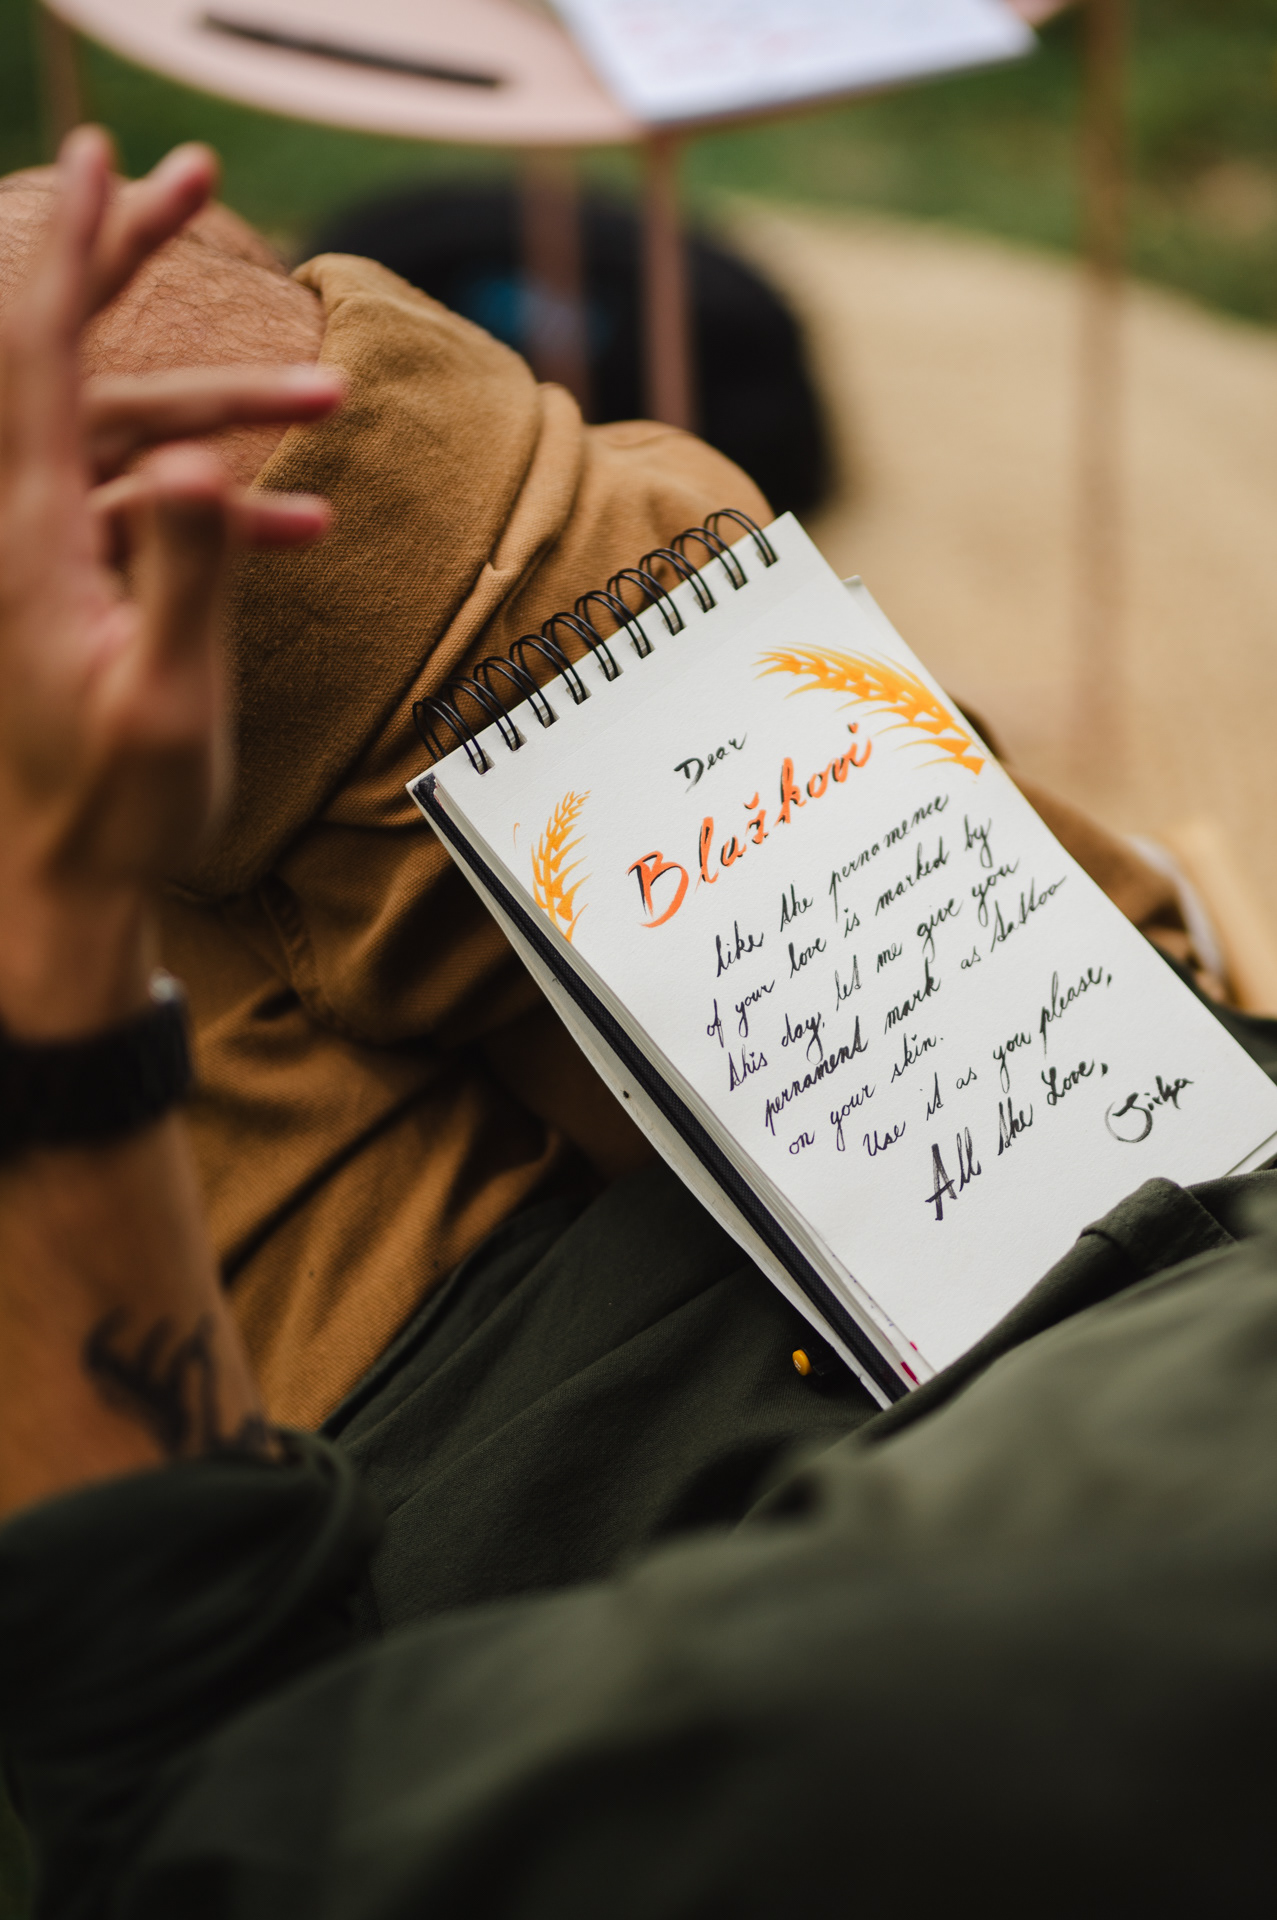 Dear
Blažkovi
like the pernamence
of your love is marked by
this day, let me give you
pernament mark as tattoo
on your skin.
Use it as you please,
All the Love,